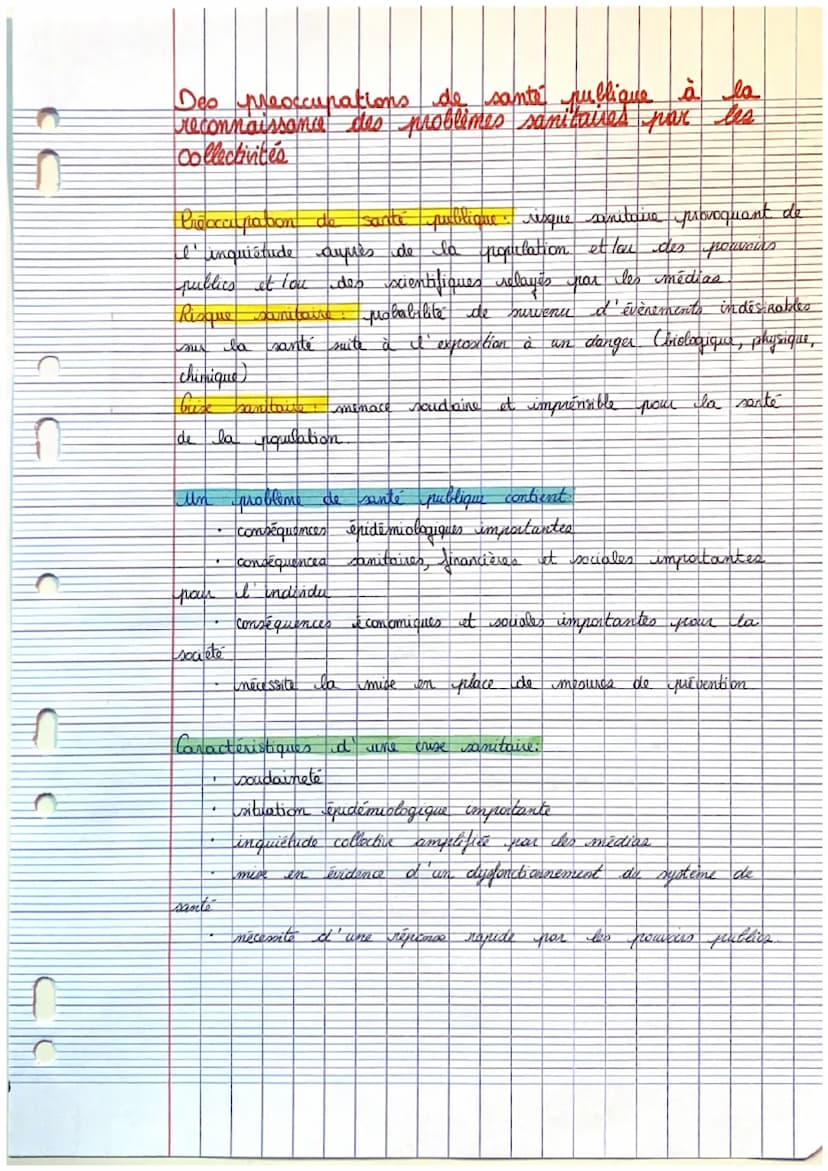 Des preoccupations de santé publique à la
reconnaissance des problèmes sanitaires par les
collectivités
Préoccupation de santé publique : risque sanitaire provoquant de
l'inquiétude auprès de la population et/ou des pouvoirs
publics et/ou des scientifiques relayés par les médias.
Risque sanitaire : probabilité de survenu d'évènements indésirables
sur la santé suite à l'exposition à un danger (biologique, physique,
chimique)
Crise sanitaire : menace soudaine et imprévisible pour la santé
de la population.
Un problème de santé publique contient:
· conséquences épidémiologiques importantes
· conséquences sanitaires, financières et sociales importantes
pour l'individu
· conséquences économiques et sociales importantes pour la
société
· nécessite la mise en place de mesures de prévention
Caractéristiques d'une crise sanitaire:
· soudaineté
· situation épidémiologique importante
· inquiétude collective amplifiée par les médias
· mise en évidence d'un dysfonctionnement du système de
santé
· nécessité d'une réponse rapide par les pouvoirs publics.